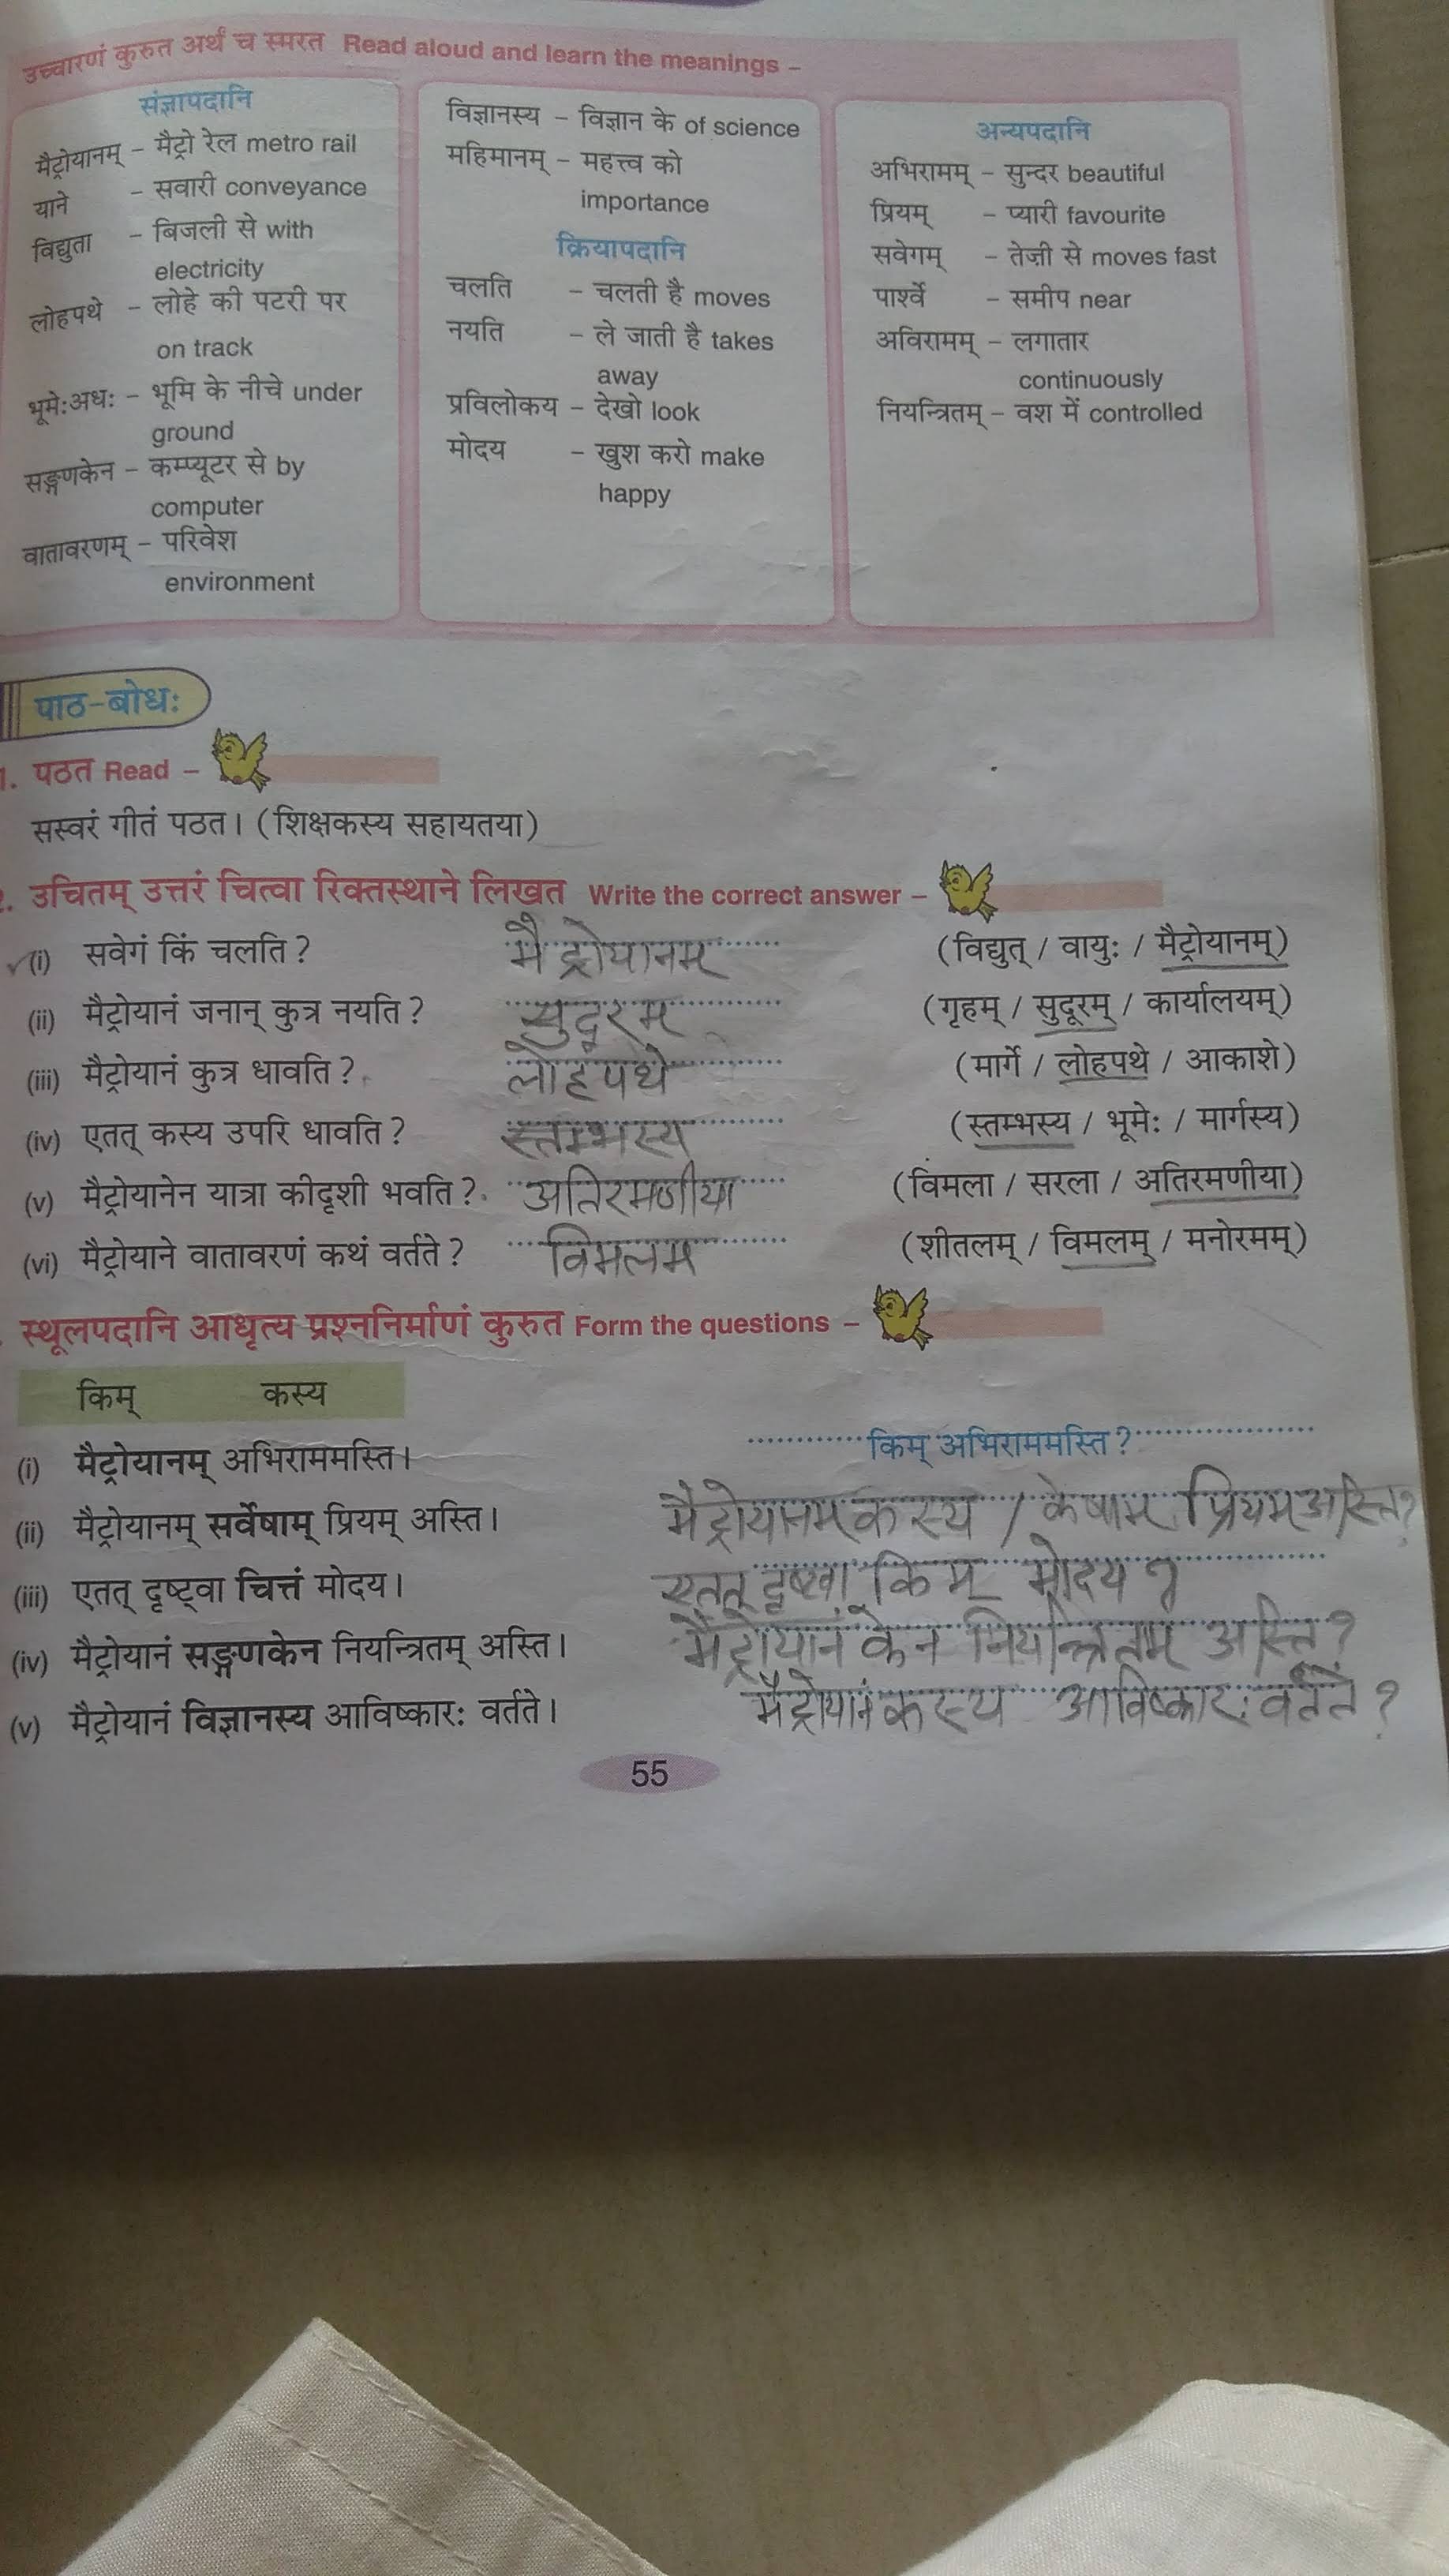 उच्चारणं कुरुत अर्थं च स्मरत Read aloud and learn the meanings –
संज्ञापदानि
मैट्रोयानम् – मैट्रो रेल metro rail
याने – सवारी conveyance
विद्युता – बिजली से with
electricity
लोहपथे – लोहे की पटरी पर
on track
भूमेःअधः – भूमि के नीचे under
ground
सङ्गणकेन – कम्प्यूटर से by
computer
वातावरणम् – परिवेश
environment
विज्ञानस्य – विज्ञान के of science
महिमानम् – महत्त्व को
importance
क्रियापदानि
चलति – चलती है moves
नयति – ले जाती है takes
away
प्रविलोकय – देखो look
मोदय – खुश करो make
happy
अन्यपदानि
अभिरामम् – सुन्दर beautiful
प्रियम् – प्यारी favourite
सवेगम् – तेज़ी से moves fast
पार्श्वे – समीप near
अविरामम् – लगातार
continuously
नियन्त्रितम् – वश में controlled
पाठ-बोधः
1. पठत Read –
सस्वरं गीतं पठत। (शिक्षकस्य सहायतया)
2. उचितम् उत्तरं चित्वा रिक्तस्थाने लिखत Write the correct answer –
(i) सवेगं किं चलति? मैट्रोयानम् (विद्युत् / वायुः / मैट्रोयानम्)
(ii) मैट्रोयानं जनान् कुत्र नयति? सुदूरम् (गृहम् / सुदूरम् / कार्यालयम्)
(iii) मैट्रोयानं कुत्र धावति? लोहपथे (मार्गे / लोहपथे / आकाशे)
(iv) एतत् कस्य उपरि धावति? स्तम्भस्य (स्तम्भस्य / भूमेः / मार्गस्य)
(v) मैट्रोयानेन यात्रा कीदृशी भवति? अतिरमणीया (विमला / सरला / अतिरमणीया)
(vi) मैट्रोयाने वातावरणं कथं वर्तते? विमलम (शीतलम् / विमलम् / मनोरमम्)
स्थूलपदानि आधृत्य प्रश्ननिर्माणं कुरुत Form the questions –
किम् कस्य
(i) मैट्रोयानम् अभिराममस्ति। किम् अभिराममस्ति?
(ii) मैट्रोयानम् सर्वेषाम् प्रियम् अस्ति। मैट्रोयानम् कस्य / केषाम् प्रियम् अस्ति?
(iii) एतत् दृष्ट्वा चित्तं मोदय। एतत् दृष्ट्वा किम् मोदय ?
(iv) मैट्रोयानं सङ्गणकेन नियन्त्रितम् अस्ति। मैट्रोयानं केन नियन्त्रितम् अस्ति?
(v) मैट्रोयानं विज्ञानस्य आविष्कारः वर्तते। मैट्रोयानं कस्य आविष्कारः वर्तते ?
55